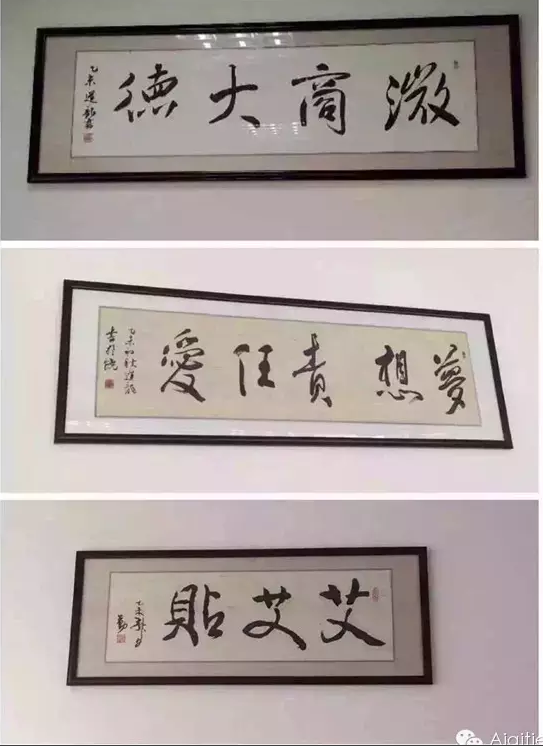 微商大德
乙未
夢想責任愛
乙未初秋
艾艾貼
乙未
Aiaitie